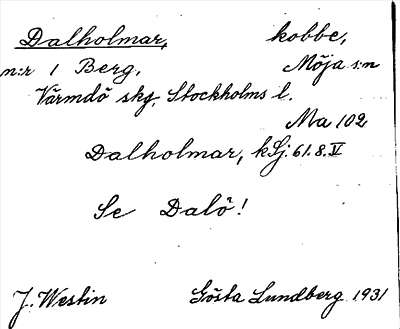 Dalholmar, kobbe,
m:r 1 Berg, Möja s:n
Värmdö skg. Stockholms l.
Ma 102
Dalholmar, kSj. 61.8.V
Se Dalö!
J. Westin Gösta Lundberg 1931